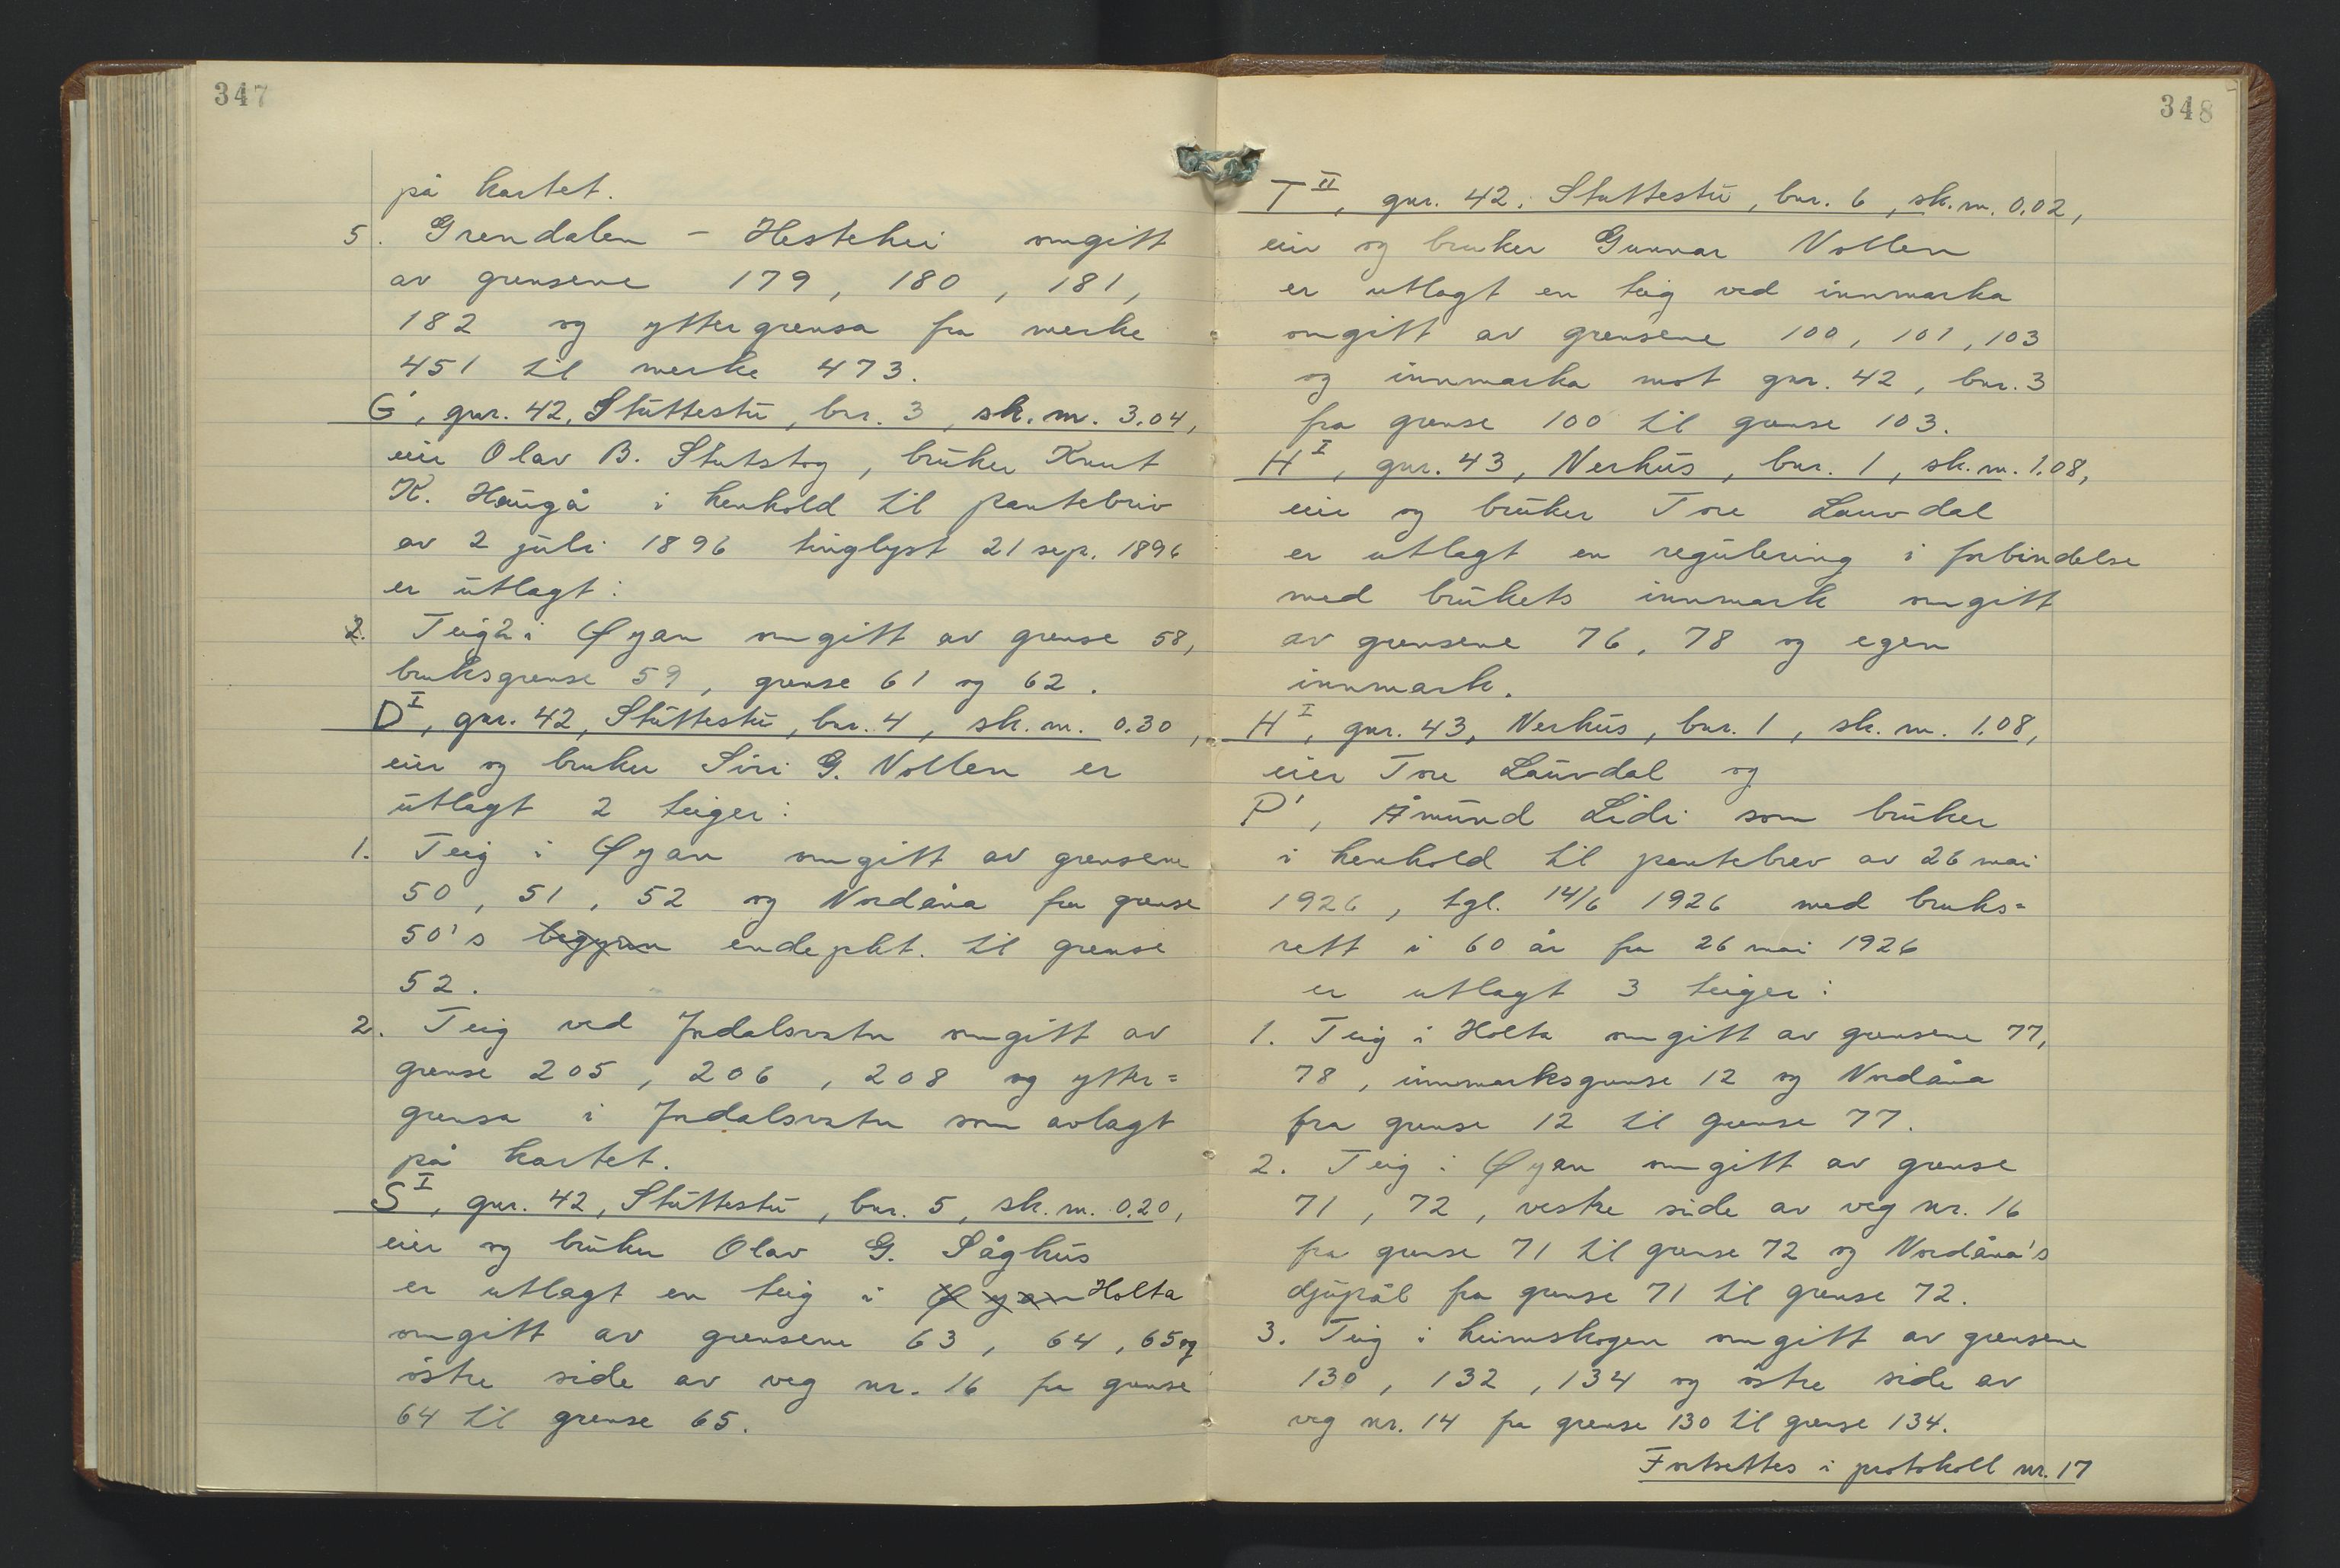 347
på kartet.
5. Grendalen - Hestehei omgitt
av grensene 179, 180, 181,
182 og yttergrensa fra merke
451 til merke 473.
G', gnr. 42, Stuttestu, bnr. 3, sk.m. 3.04,
eier Olav B. Stutstog, bruker Knut
K. Haugå i henhold til pantebriv
av 2 juli 1896 tinglyst 21 sep. 1896
er utlagt:
2. Teig 2 i Øyan omgitt av grense 58,
bruksgrense 59, grense 61 og 62.
D I, gnr. 42, Stuttestu, bnr. 4, sk.m. 0.30,
eier og bruker Siri G. Vollen er
utlagt 2 teiger:
1. Teig i Øyan omgitt av grensene
50, 51, 52 og Nordåna fra grense
50's begynn endepkt. til grense
52.
2. Teig ved Jordalsvatn omgitt av
grense 205, 206, 208 og ytter=
grensa i Jordalsvatn som avlagt
på kartet.
S I, gnr. 42, Stuttestu, bnr. 5, sk.m. 0.20,
eier og bruker Olav G. Såghus
er utlagt en teig i Øyan Holta
omgitt av grensene 63, 64, 65 og
östre side av veg nr. 16 fra grense
64 til grense 65.
348
T II, gnr. 42, Stuttestu, bnr. 6, sk.m. 0.02,
eier og bruker Gunnar Vollen
er utlagt en teig ved innmarka
omgitt av grensene 100, 101, 103
og innmarka mot gnr. 42, bnr. 3
fra grense 100 til grense 103.
H I, gnr. 43, Nerhus, bnr. 1, sk.m. 1.08,
eier og bruker Tore Lauvdal
er utlagt en regulering i forbindelse
med brukets innmark omgitt
av grensene 76, 78 og egen
innmark.
H I, gnr. 43, Nerhus, bnr. 1, sk.m. 1.08,
eier Tore Lauvdal og
P', Åmund Lidi som bruker
i henhold til pantebrev av 26 mai
1926, tgl. 14/6 1926 med bruks=
rett i 60 år fra 26 mai 1926
er utlagt 3 teiger:
1. Teig i Holta omgitt av grensene 77,
78, innmarksgrense 12 og Nordåna
fra grense 12 til grense 77.
2. Teig i Øyan omgitt av grense
71, 72, vestre side av veg nr. 16
fra grense 71 til grense 72 og Nordåna's
djupål fra grense 71 til grense 72.
3. Teig i heimskogen omgitt av grensene
130, 132, 134 og östre side av
veg nr. 14 fra grense 130 til grense 134.
Fortsettes i protokoll nr. 17